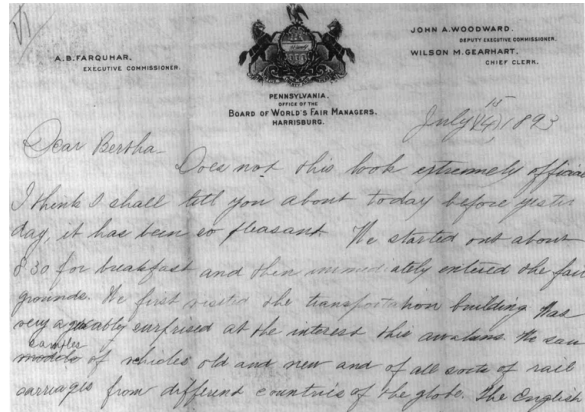 A.B. FARQUHAR,
EXECUTIVE COMMISSIONER.
JOHN A. WOODWARD,
DEPUTY EXECUTIVE COMMISSIONER.
WILSON M. GEARHART,
CHIEF CLERK.
PENNSYLVANIA.
OFFICE OF THE
BOARD OF WORLD'S FAIR MANAGERS.
HARRISBURG.
July 1893
Dear Bertha
Does not this look extremely official
I think I shall tell you about today before yester
day, it has been so pleasant. We started out about
8 30 for breakfast and then immediately entered the fair
grounds. We first visited the transportation building Was
very agreeably surprised at the interest this awakens. We saw
samples
models of vehicles old and new and of all sorts of rail
carriages from different countries of the globe. The English